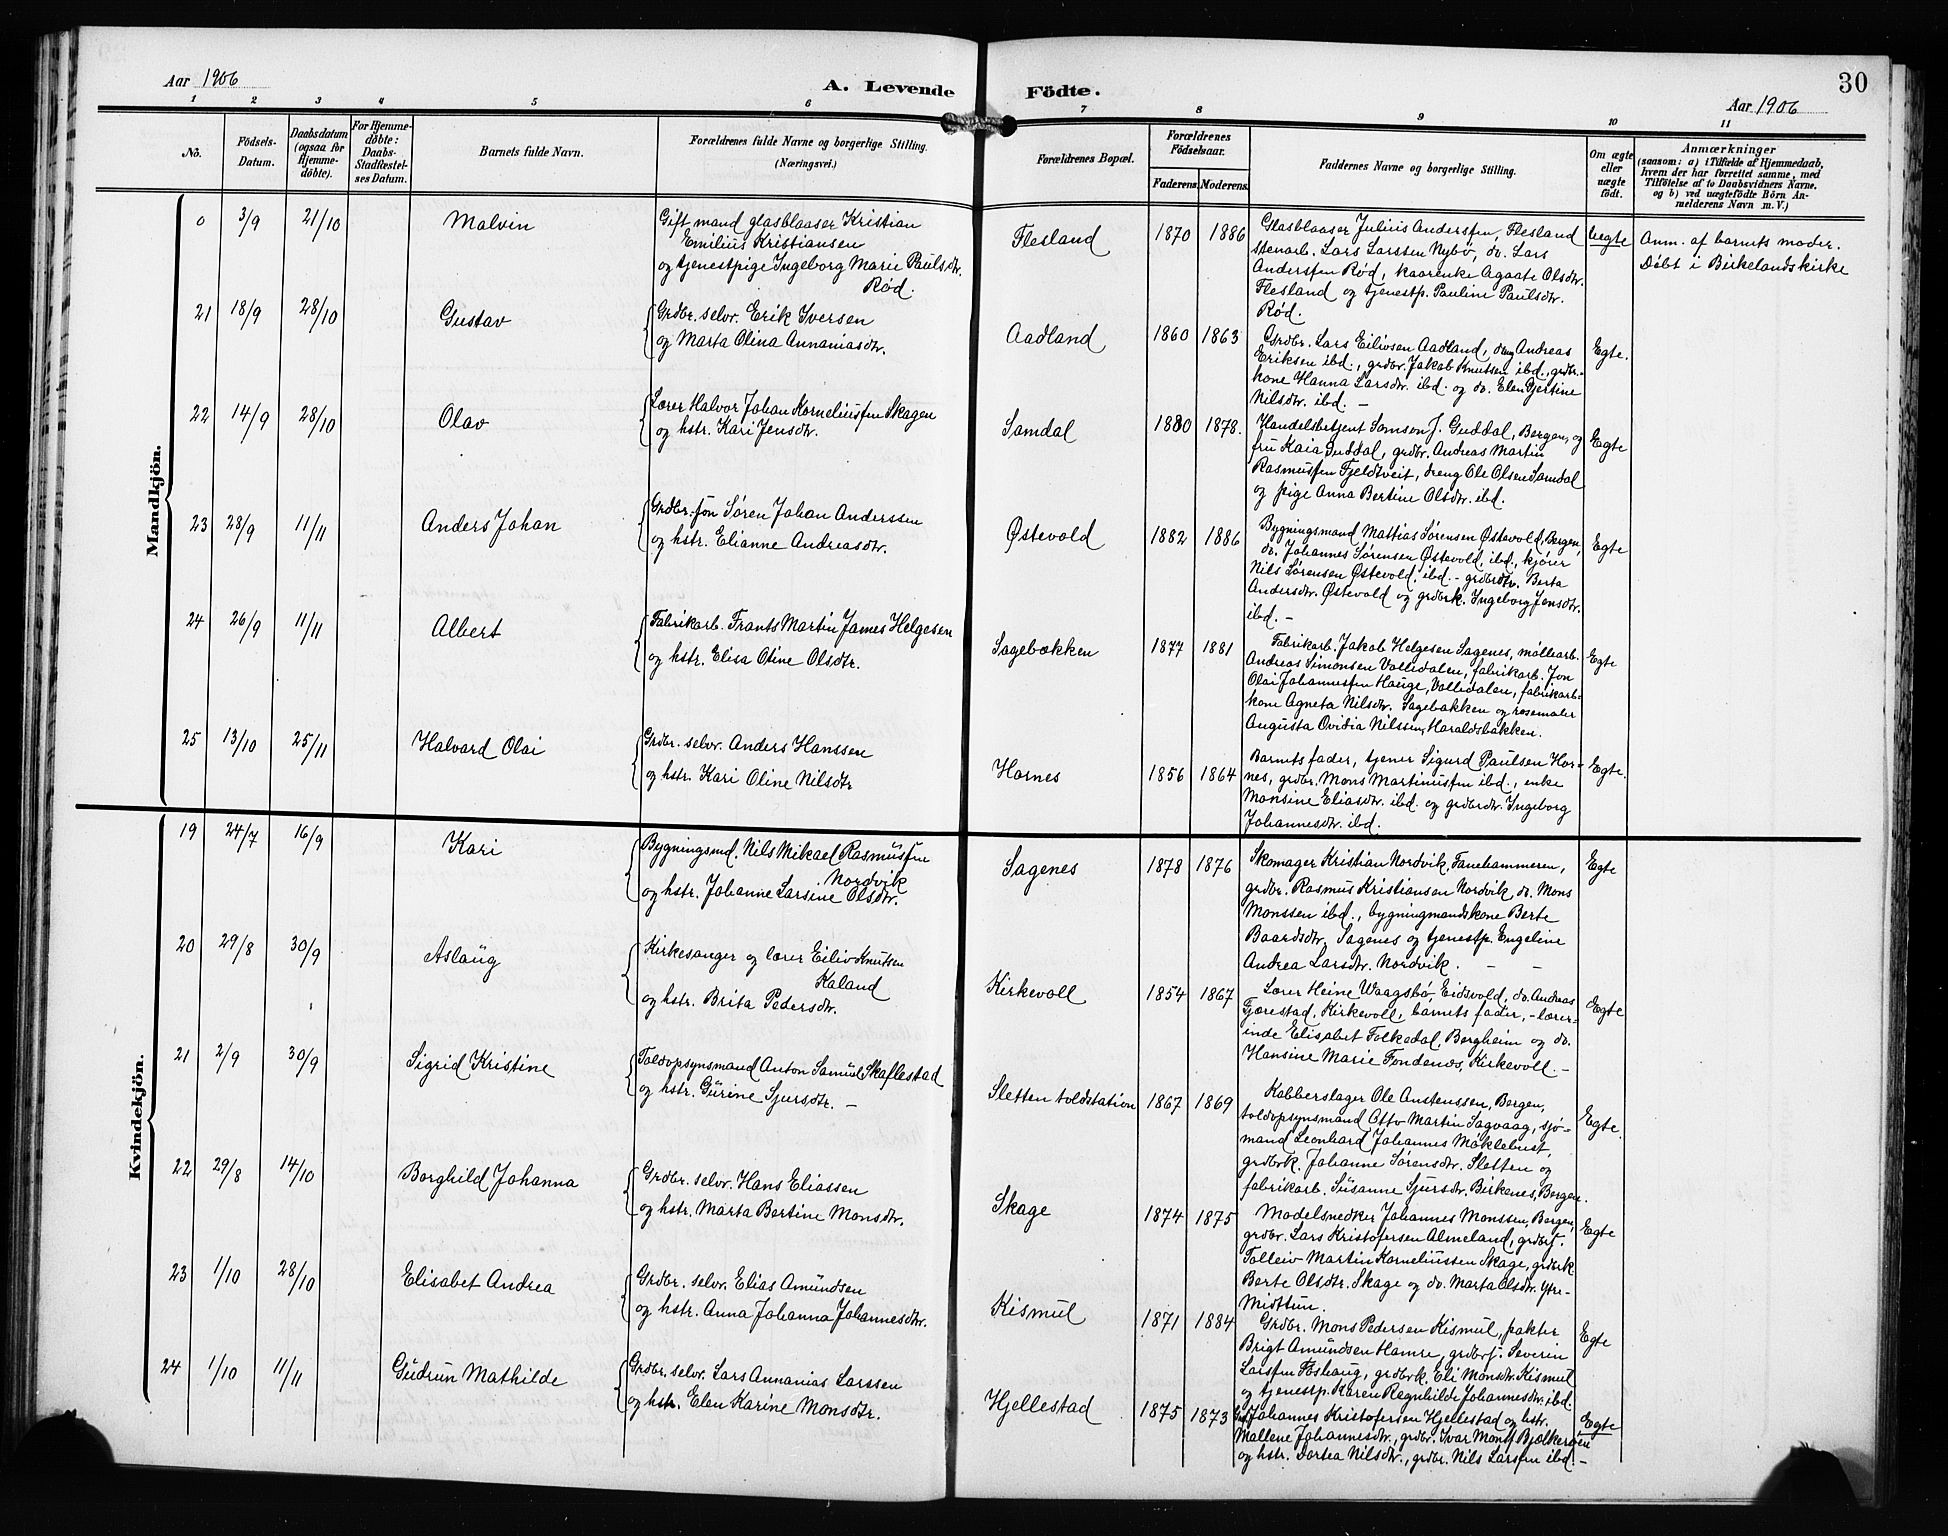 Aar 1906
A. Levende Födte.
30
Aar 1906
1 2 3 4 5 6 7 8 9 10 11
No.
Födsels-
Datum.
Daabsdatum
(ogsaa for
Hjemme-
döbte).
For Hjemme-
döbte:
Daabs-
Stadfæstel-
ses Datum.
Barnets fulde Navn.
Forældrenes fulde Navne og borgerlige Stilling.
(Næringsvei.)
Forældrenes Bopæl.
Forældrenes
Födselsaar.
Faderens. Moderens.
Faddernes Navne og borgerlige Stilling.
Om ægte
eller
uægte
födt.
Anmærkninger
(saasom: a) i Tilfælde af Hjemmedaab,
hvem der har forrettet samme, med
Tilföielse af to Daabsvidners Navne.
og b) ved uægtefödte Börn An-
melderens Navn m. V.)
Mandkjön.
0 3/9 21/10 Malvin
Gift mand glasblaaser Kristian
Emilius Kristiansen
og tjenestpige Ingeborg Marie Paulsdtr.
Rød.
Flesland 1870 1886
Glasblaaser Julius Anderssen, Flesland
stenarb. Lars Larssen Nybø, do. Lars
Anderssen Rød, kaarenke Agaate Olsdtr.
Flesland og tjenestp. Pauline Paulsdtr.
Rød.
uegte
Anm. af barnets moder.
Döbt i Birkelandskirke
21 18/9 28/10 Gustav
Grdbr. selv. Erik Iversen
og Marta Olina Annaniasdtr.
Aadland 1860 1863
Grdbr. Lars Eilivsen Aadland, dreng Andreas
Eriksen ibd., grdbr. Jakob Knutsen ibd., grdbr.-
kone Hanna Larsdtr. ibd. og do. Elen Gjertine
Nilsdtr. ibd. —
Egte.
22 14/9 28/10 Olav
Lærer Halvor Johan Korneliussen Skagen
og hstr. Kari Jensdtr.
Samdal 1880 1878.
Handelsbetjent Samson J. Guddal, Bergen, og
fru Kaia Guddal, grdbr. Andreas Martin
Rasmussen Fjeldtveit, dreng Ole Olsen Samdal
og pige Anna Bertine Olsdtr. ibd.
Egte
23 28/9 11/11 Anders Johan
Grdbr. søn Søren Johan Anderssen
og hstr. Elianne Andreasdtr.
Østevold 1882 1886
Bygningsmand Mattias Sørensen Østevold, Bergen,
do. Johannes Sørensen Østevold, ibd., kjører
Nils Sørensen Østevold, ibd. - grdbrdtr. Berta
Andersdtr. Østevold og grdbrk. Ingeborg Jensdtr.
ibd. —
Egte
24 26/9 11/11 Albert
Fabrikarb. Frants Martin James Helgesen
og hstr. Elisa Otine Olsdtr.
Sagebækken 1877 1881
Fabrikarb. Jakob Helgesen Sagenes, møllearb.
Andreas Simonsen Valledalen, fabrikarb. Jon
Olai Johannessen Hauge, Valledalen, fabrikarb-
kone Agneta Nilsdtr. Sagebakken og rosemaler
Augusta Ovidia Nilssen, Haraldsbakken.
Egte
25 13/10 25/11 Halvard Olai
Grdbr. selv. Anders Hanssen
og hstr. Kari Oline Nilsdtr
Hornes 1856 1864
Barnets fader, tjener Sigurd Paulsen Hor-
nes, grdbr. Mons Martinussen ibd., enke
Monsine Eliasdtr. ibd. og grdbrdtr. Ingeborg
Johannesdtr. ibd.
Egte.
Kvindekjön.
19 24/7 16/9 Kari
Bygningsmd. Nils Mikael Rasmussen
Nordvik
og hstr. Johanne Larsine Olsdtr.
Sagenes 1878 1876
Skomager Kristian Nordvik, Fanehammeren,
grdbr. Rasmus Kristiansen Nordvik, do. Mons
Monssen ibd., bygningmandskone Berte
Baardsdtr. Sagenes og tjenestp. Engeline
Andrea Larsdtr. Nordvik. — —
Egte
20 29/8 30/9 Aslaug
Kirkesanger og lærer Eiliv Knutsen
Kaland
og hstr. Brita Pedersdtr.
Kirkevoll 1854 1867
Lærer Heine Waagsbø, Eidsvold, do. Andreas
Fjærestad, Kirkevoll, barnets fader, - lærer-
inde Elisabet Folkedal, Bergheim og do.
Hansine Marie Fondenes, Kirkevoll. —
Egte
21 2/9 30/9 Sigrid Kristine
Toldopsynsmand Anton Samuel Skaflestad
og hstr. Gurine Sjursdtr. —
Sletten toldstation 1867 1869
Kobberslager Ole Anstenssen, Bergen,
toldopsynsmand Otto Martin Sagvaag, sjø-
mand Leonhard Johannes Møklebust,
grdbrk. Johanne Sørensdtr. Sletten og
fabrikarb. Susanne Sjursdtr. Birkenes, Bergen.
Egte.
22 29/8 14/10 Borghild Johanna
Grdbr. selv. Hans Eliassen
og hstr. Marta Bertine Monsdtr.
Skage 1874 1875
Modelsnedker Johannes Monssen, Bergen,
grdbr. Lars Kristofersen Almeland, grdbrs.
Tolleiv Martin Korneliussen Skage, grdbrk
Berte Olsdtr. Skage og do. Marta Olsdtr. Ytre-
Midttun.
Egte
23 1/10 28/10 Elisabet Andrea
Grdbr. selv. Elias Amundsen
og hstr. Anna Johanna Johannesdtr.
Kismul 1871 1884
Grdbr. Mons Pedersen Kismul, pakter
Brigt Amundsen Hamre, grdbrs. Severin
Larssen Fóshaug, grdbrk. Eli Monsdtr. Kismul
og tjenestp. Karen Ragnhilde Johannesdtr. ibd.
Egte
24 1/10 11/11 Gudrun Mathilde
Grdbr. selv. Lars Annanias Larssen
og hstr. Elen Karine Monsdtr.
Hjellestad 1875 1873
Grdb. Johannes Kristofersen Hjellestad og hstr.
Mallene Johannesdtr., grdbr. Ivar Monss. Bjelkerøen
og hstr. Dortea Nilsdtr., grdbr. Nils Larssen ibd. —
Egte